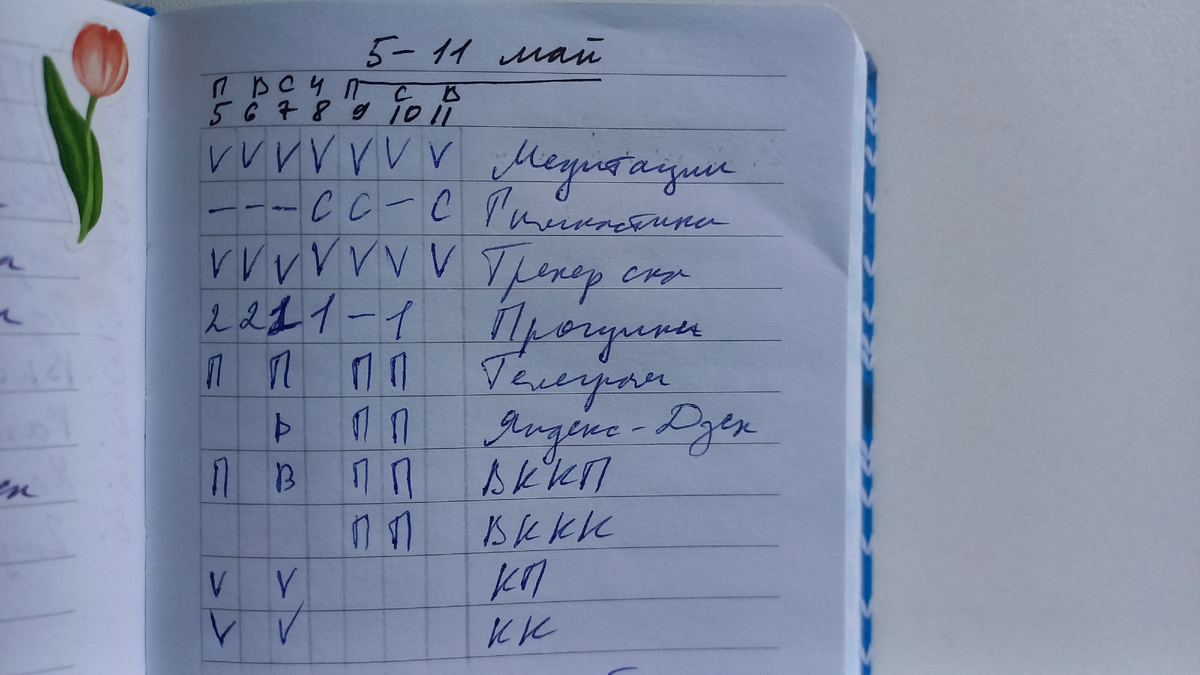 5 – 11 май
П В С Ч П С В
5 6 7 8 9 10 11
V V V V V V V Медитации
– – – С С – С Гимнастика
V V V V V V V Трекер сна
2 2 1 1 – 1 Прогулки
П П П П Телеграм
В П П Яндекс-Дзен
П В П П ВККП
П П ВККК
V V КП
V V КК